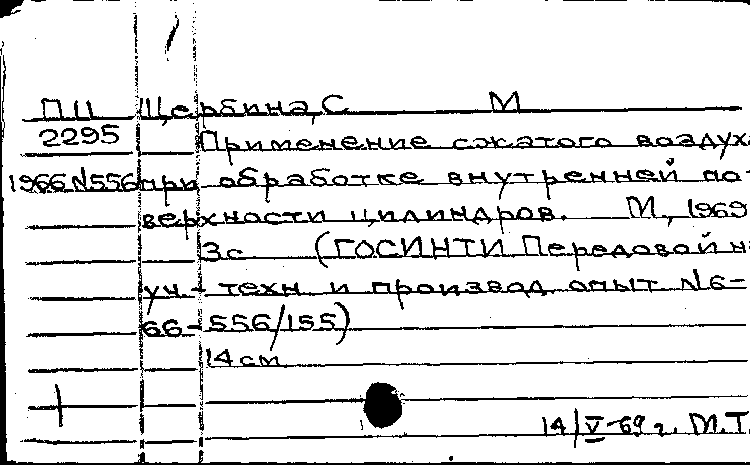 ПЦ Щербина, С М
2295 Применение сжатого воздух
1966 N556 при обработке внутренней по-
верхности цилиндров. М., 1969
3с (ГОСИНТИ Передовой н
уч-техн и производ опыт N6-
66-556/155)
14 см
14/V-69 г. М.Т.